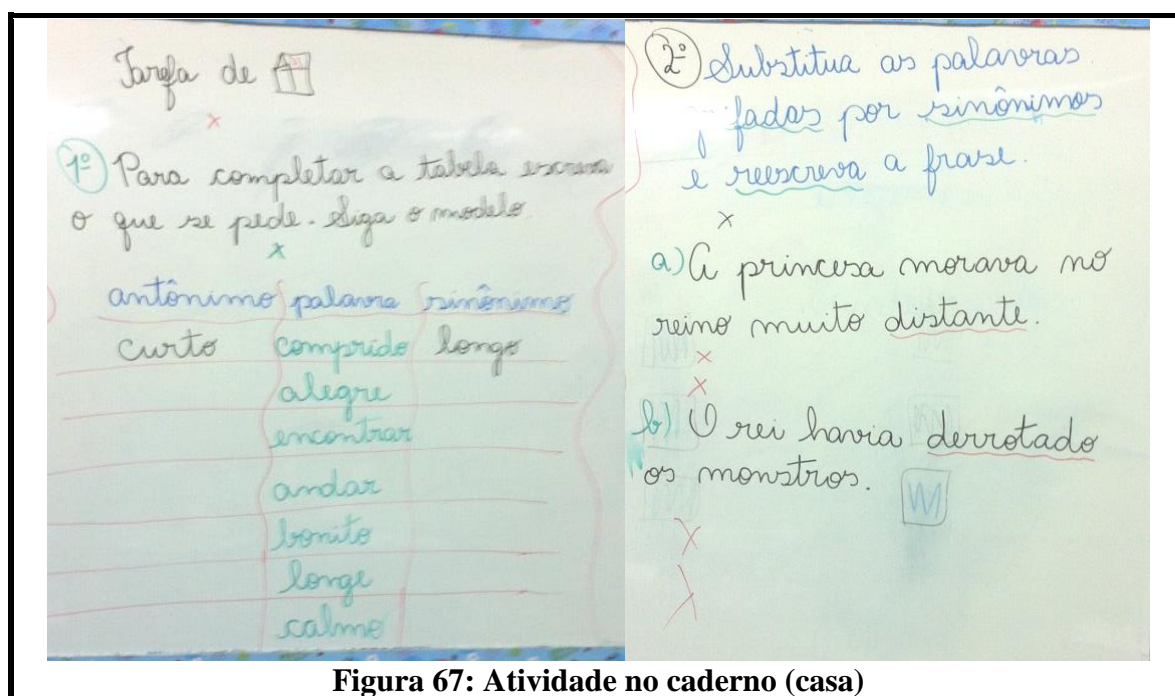 Tarefa de
1º) Para completar a tabela escreva
o que se pede. Siga o modelo.
antônimo palavra sinônimo
curto comprido longo
alegre
encontrar
andar
bonito
longe
calmo
2º) Substitua as palavras
fadas por sinônimos
e reescreva a frase.
a) A princesa morava no
reino muito distante.
b) O rei havia derrotado
os monstros.
Figura 67: Atividade no caderno (casa)